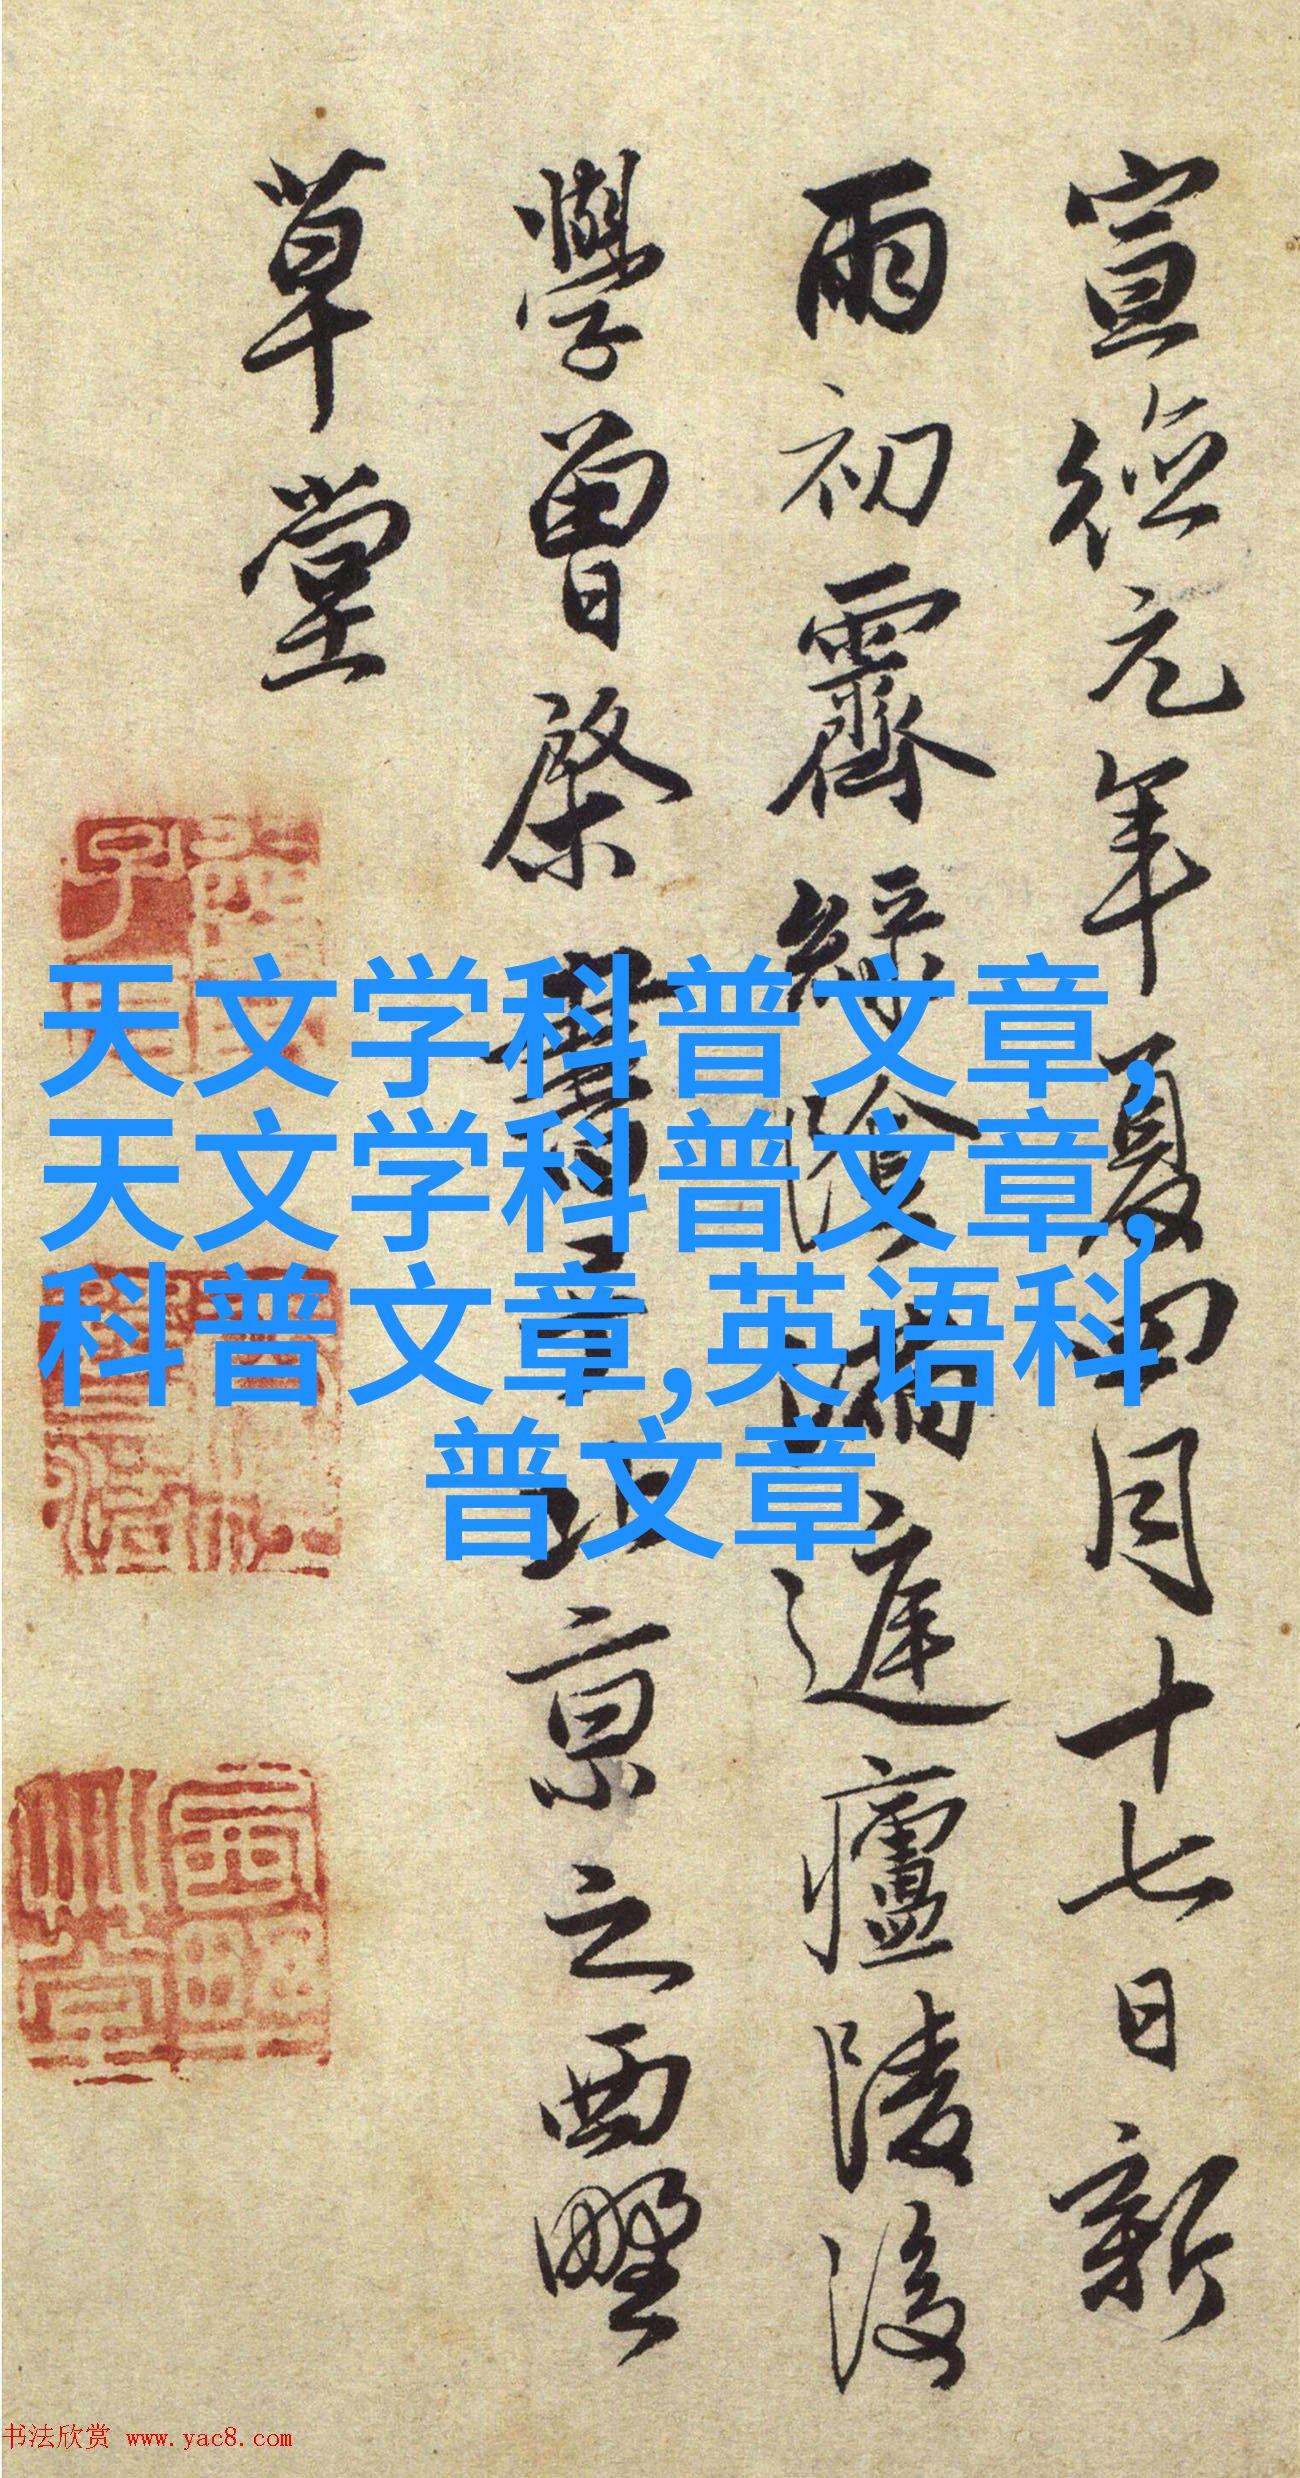 宣德元年夏四月十七日新
雨初霽綠陰滿庭廬陵後
學曾棨書于北京之西墅
草堂
天文学科普文章,
天文学科普文章,
科普文章,英语科
普文章
书法欣赏 www.yac8.com